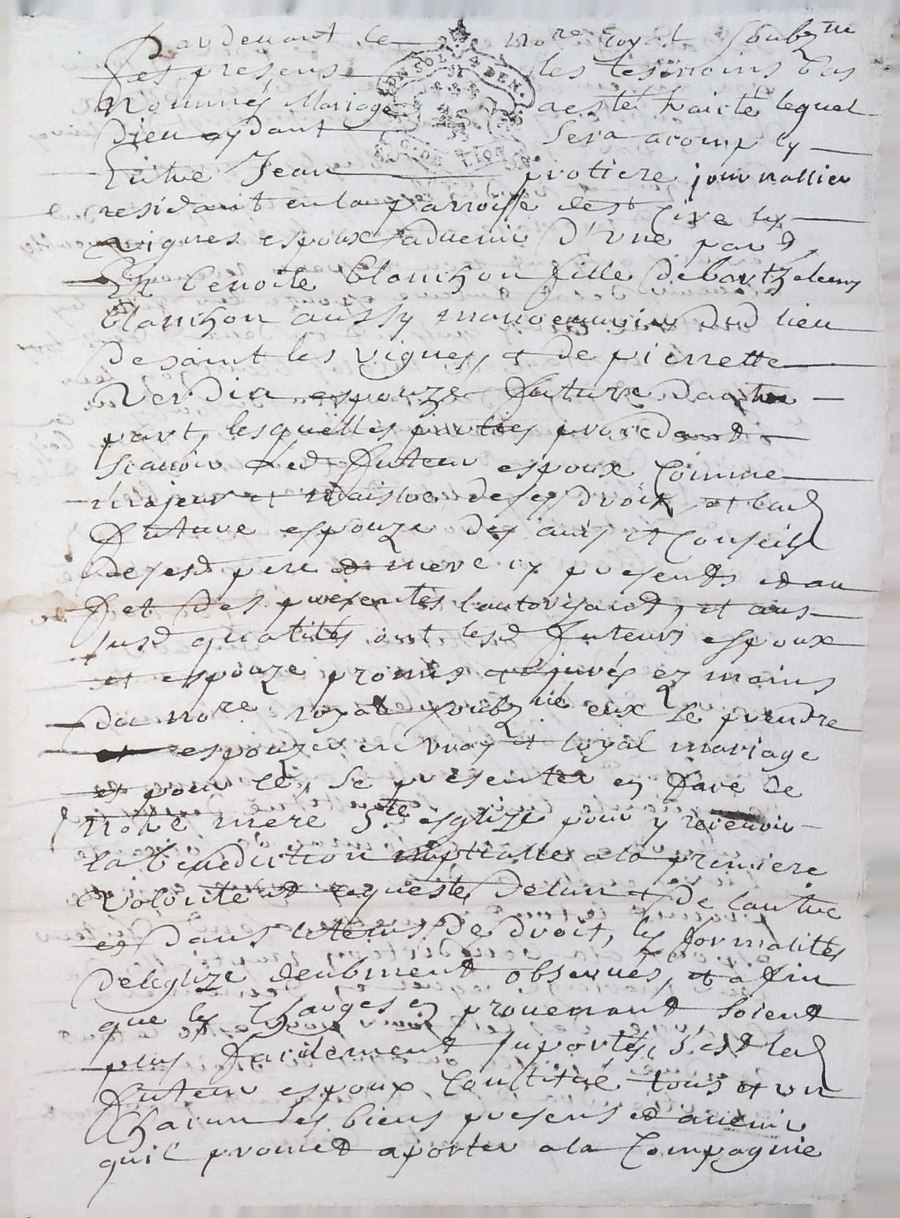 Pardevant le no.re royal soubz.ne
et presens les tesmoins bas
nommés Mariage a esté traité lequel
dieu aydant sera acomply
Entre Jean protiere journallier
residant en la parroisse de st Cire les
vignes espoux aduenir d'une part
Et benoite blanchon fille de barthelemy
blanchon aussy manoeuvrier dud lieu
de saint les vignes, et de pierrette
Verdier espouze future dautre
part, lesquelles parties procedant
scauoir led futeur espoux comme
majeur et maistre de ses droit, et lad
future espouze des auis et Conseils
de sesd pere et mere icy presents et au
fet des presentes l'autorisant, et aus
susd qualités ont lesd futeurs espoux
et espouze promis et jurés ez mains
du no.re royal soubz.né eux le prendre
et espouzer en vray et loyal mariage
et pour ce, se presenter en face de
notre mere s.te esglize pour y receuoir
la benediction nuptialle a la premiere
volonté et requeste de lun et de lautre
et dans le tems de droit, les formalités
de leglize deubment obserues, et afin
que les Charges en prouenant soient
plus facilement suportés, s'est led
futeur espoux Constitué tous et un
Chacun ses biens presens et auenir
quil promet aporter a la Compagnie
CON SOL 4 DEN.
G. DE LION